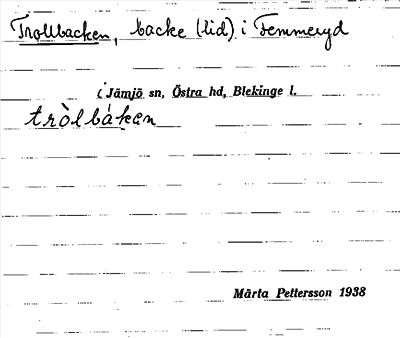 Trollbacken, backe (lid) i Femmeryd
i Jämjö sn, Östra hd, Blekinge l.
tròlbáken
Märta Pettersson 1938